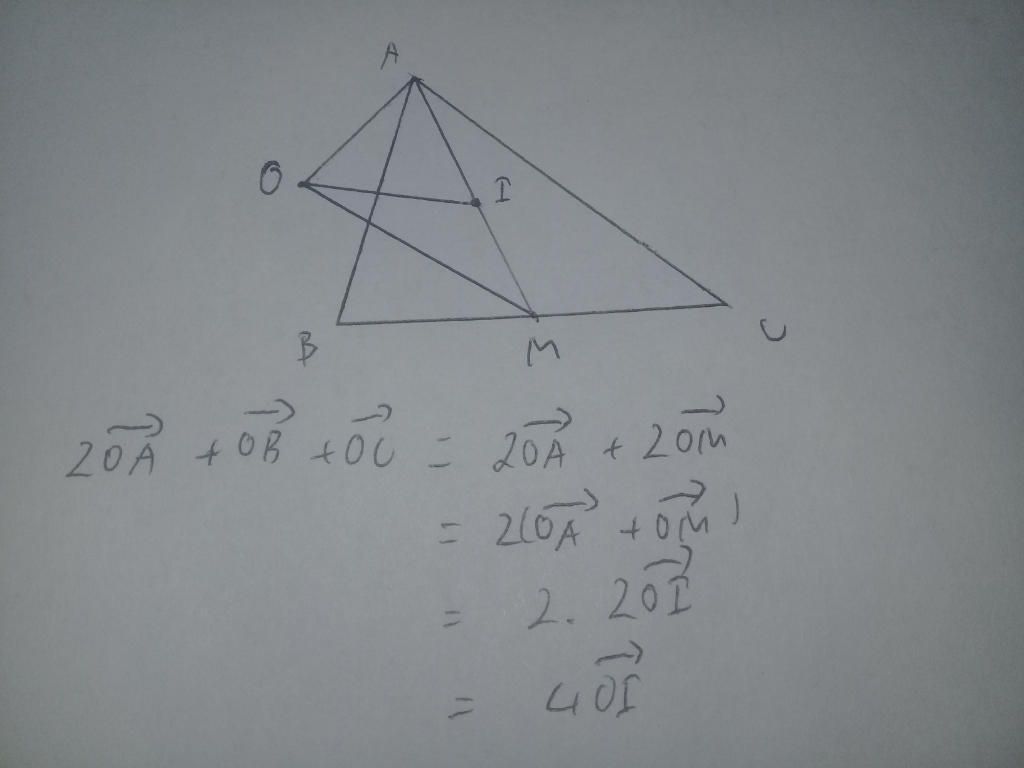 A
O
I
B
M
C
2OA⃗ + OB⃗ + OC⃗ = 2OA⃗ + 2OM⃗
= 2(OA⃗ + OM⃗)
= 2. 2OI⃗
= 4OI⃗